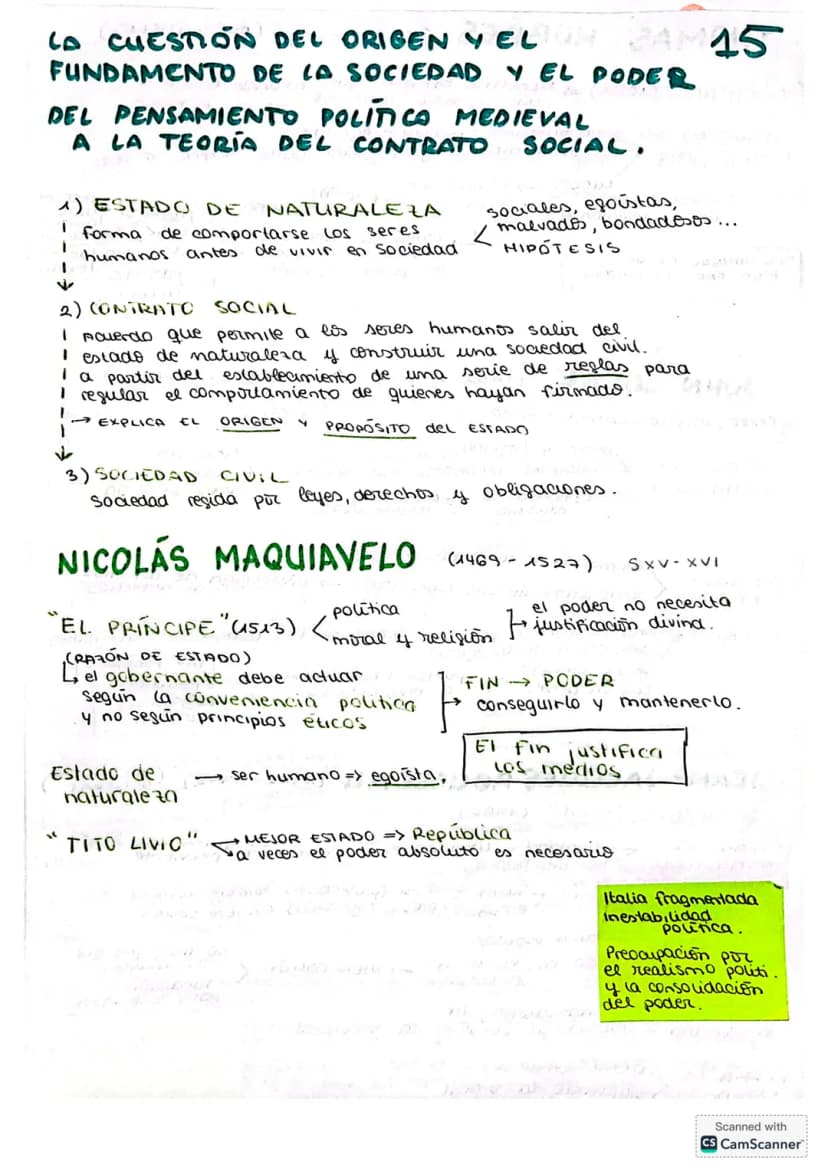 LA CUESTIÓN DEL ORIGEN Y EL
15
FUNDAMENTO DE LA SOCIEDAD Y EL PODER
DEL PENSAMIENTO POLÍTICO MEDIEVAL
A LA TEORÍA DEL CONTRATO SOCIAL.
1) ESTADO DE NATURALEZA
forma de comportarse los seres
humanos antes de vivir en sociedad
sociales, egoístas,
malvados, bondadosos...
HIPÓTESIS
2) CONTRATO SOCIAL
Acuerdo que permite a los seres humanos salir del
estado de naturaleza y construir una sociedad civil.
a partir del establecimiento de una serie de reglas para
regular el comportamiento de quienes hayan firmado.
→ EXPLICA EL ORIGEN Y PROPÓSITO del ESTADO
3) SOCIEDAD CIVIL
Sociedad regida por leyes, derechos y obligaciones.
NICOLÁS MAQUIAVELO (1469 - 1527) S XV - XVI
"EL PRÍNCIPE" (1513)
política
moral y religión
el poder no necesita
justificación divina.
(RAZÓN DE ESTADO)
↳ el gobernante debe actuar
según la conveniencia política
y no según principios éticos
FIN → PODER
conseguirlo y mantenerlo.
El fin justifica
los medios
Estado de
naturaleza
→ ser humano => egoísta,
"TITO LIVIO"
→ MEJOR ESTADO => República
→ a veces el poder absoluto es necesario
Italia fragmentada
Inestabilidad
política.
Preocupación por
el realismo políti.
y la consolidación
del poder.
Scanned with
CS CamScanner